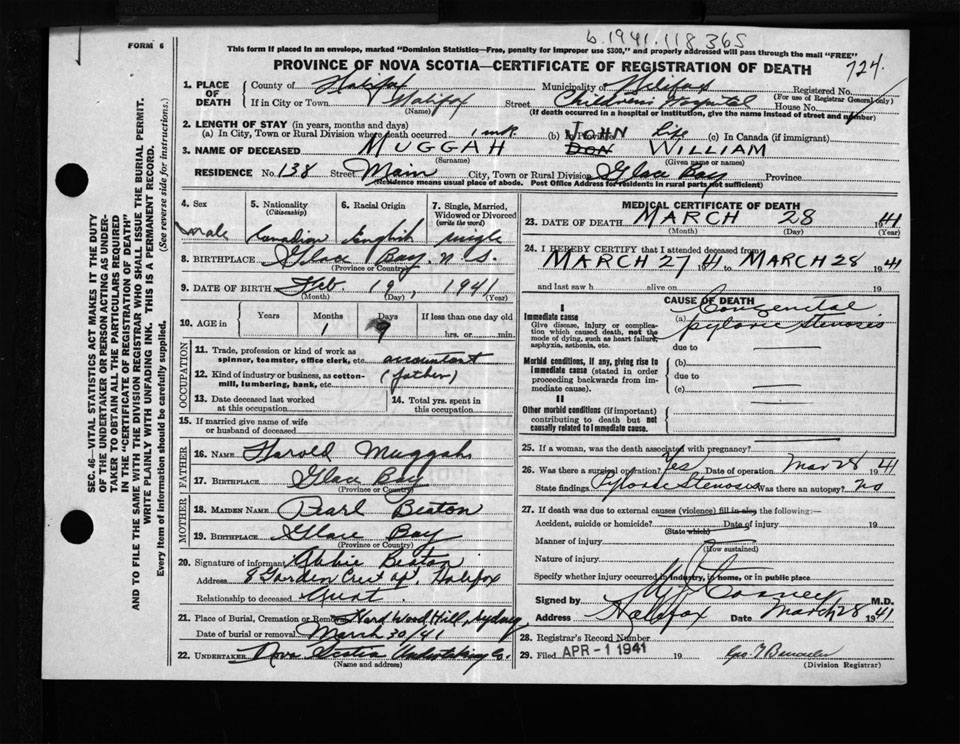 b.1941.118365
FORM 6
This form if placed in an envelope, marked "Dominion Statistics—Free, penalty for improper use $300," and properly addressed will pass through the mail "FREE"
PROVINCE OF NOVA SCOTIA—CERTIFICATE OF REGISTRATION OF DEATH
724.
1. PLACE OF DEATH County of Halifax Municipality of Halifax Registered No.
(For use of Registrar General only)
If in City or Town Halifax Street Childrens Hospital House No.
(Name) (If death occurred in a hospital or institution, give the name instead of street and number)
2. LENGTH OF STAY (in years, months and days)
(a) In City, Town or Rural Division where death occurred 1 (b) In Province Life (c) In Canada (if immigrant)
3. NAME OF DECEASED MUGGAH JOHN DON WILLIAM
(Surname) (Given name or names)
RESIDENCE No. 138 Street Main City, Town or Rural Division Glace Bay Province
(Residence means usual place of abode. Post Office Address for residents in rural parts not sufficient)
4. Sex 5. Nationality (Citizenship) 6. Racial Origin 7. Single, Married, Widowed or Divorced (write the word)
male Canadian English single
8. BIRTHPLACE Glace Bay, N.S.
(Province or Country)
9. DATE OF BIRTH Feb. 19, 1941
(Month) (Day) (Year)
10. AGE in Years Months Days If less than one day old
1 9 hrs. or min.
OCCUPATION
11. Trade, profession or kind of work as spinner, teamster, office clerk, etc. accountant
12. Kind of industry or business, as cotton-mill, lumbering, bank, etc. (father)
13. Date deceased last worked at this occupation 14. Total yrs. spent in this occupation
15. If married give name of wife or husband of deceased
FATHER
16. Name Harold Muggah
17. Birthplace Glace Bay
(Province or Country)
MOTHER
18. Maiden Name Pearl Beaton
19. Birthplace Glace Bay
(Province or Country)
20. Signature of informant Abbie Beaton
Address 8 Garden Crest ap, Halifax
Relationship to deceased Aunt
21. Place of Burial, Cremation or Removal Hard Wood Hill, Sydney
Date of burial or removal March 30/41
22. Undertaker Nova Scotia Undertaking Co.
(Name and address)
MEDICAL CERTIFICATE OF DEATH
23. DATE OF DEATH MARCH 28 1941
(Month) (Day) (Year)
24. I HEREBY CERTIFY that I attended deceased from:
MARCH 27 41 to MARCH 28 1941
and last saw h alive on 19
CAUSE OF DEATH
I
Immediate cause
Give disease, injury or complication which caused death, not the mode of dying, such as heart failure, asphyxia, asthenia, etc.
(a) Congenital pyloric stenosis
due to
Morbid conditions, if any, giving rise to immediate cause (stated in order proceeding backwards from immediate cause).
(b)
due to
(c)
II
Other morbid conditions (if important) contributing to death but not causally related to immediate cause.
25. If a woman, was the death associated with pregnancy?
26. Was there a surgical operation? Yes Date of operation Mar 28 1941
State findings Pyloric Stenosis Was there an autopsy? no
27. If death was due to external causes (violence) fill in also the following:—
Accident, suicide or homicide? Date of injury 19
(State which)
Manner of injury
(How sustained)
Nature of injury
Specify whether injury occurred in industry, in home, or in public place
Signed by M.D.
Address Halifax Date March 28 1941
28. Registrar's Record Number
29. Filed APR - 1 1941 19
(Division Registrar)
SEC. 46—VITAL STATISTICS ACT MAKES IT THE DUTY
OF THE UNDERTAKER OR PERSON ACTING AS UNDER-
TAKER TO OBTAIN ALL THE PARTICULARS REQUIRED
IN THE "CERTIFICATE OF REGISTRATION OF DEATH"
AND TO FILE THE SAME WITH THE DIVISION REGISTRAR WHO SHALL ISSUE THE BURIAL PERMIT.
WRITE PLAINLY WITH UNFADING INK. THIS IS A PERMANENT RECORD.
Every item of information should be carefully supplied. (See reverse side for instructions.)